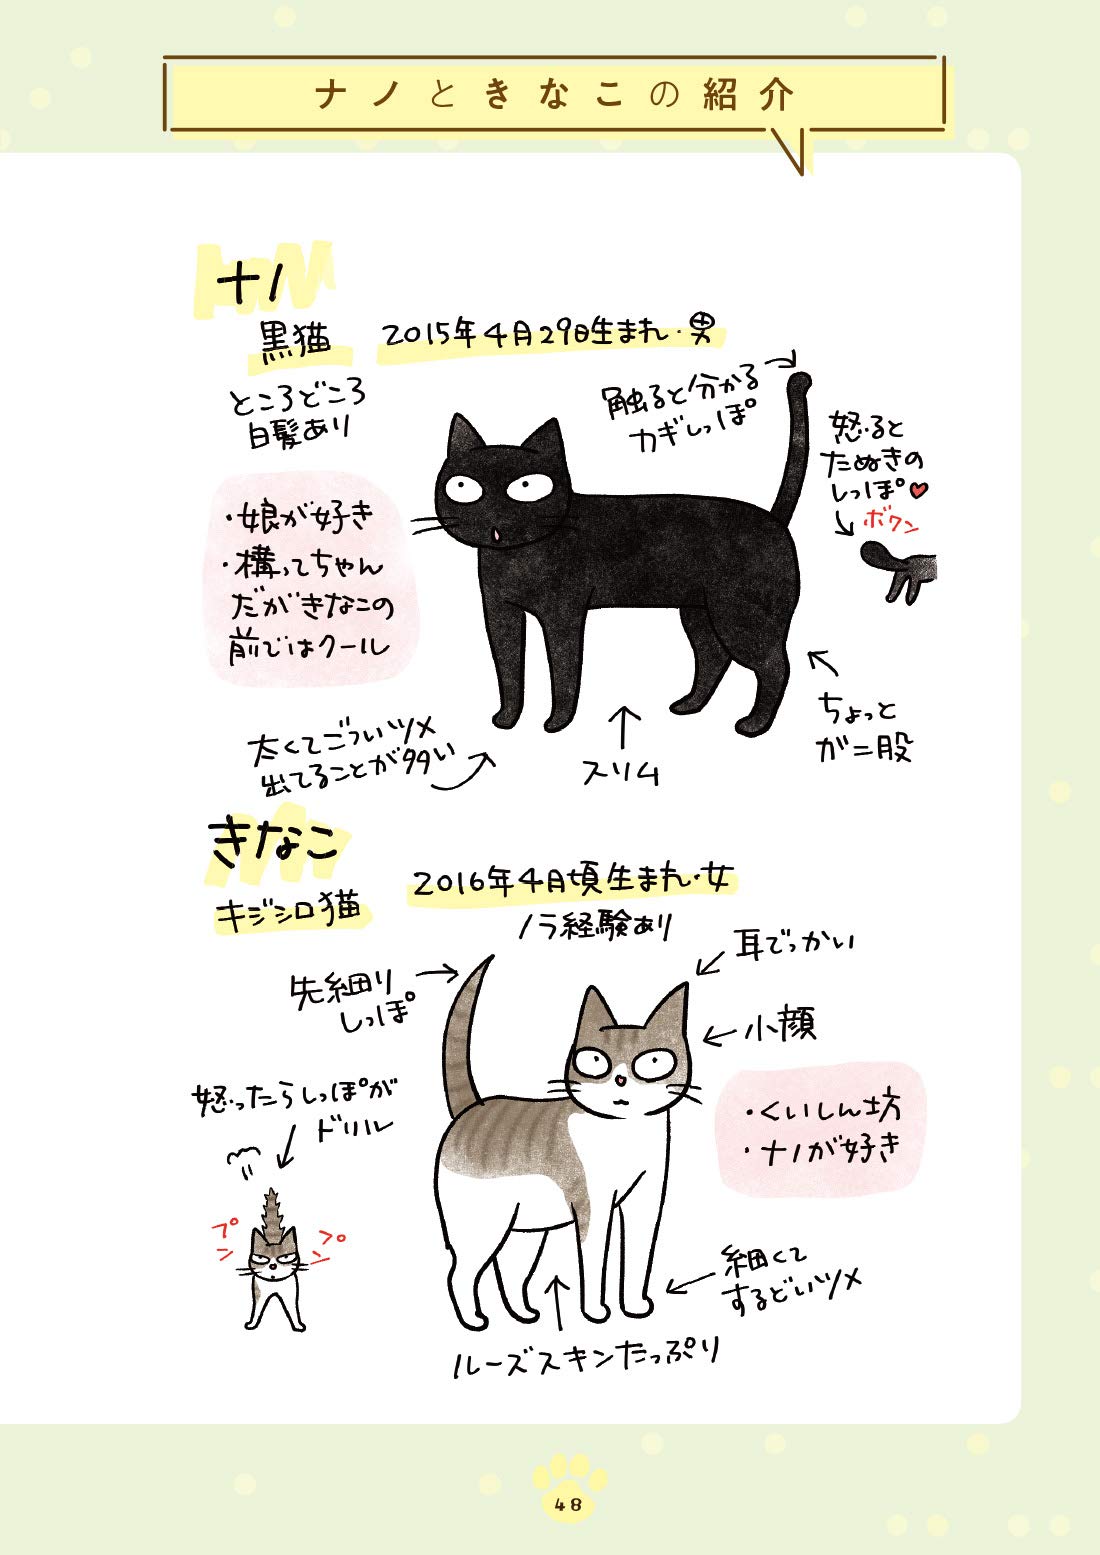 ナノときなこの紹介
ナノ
黒猫
2015年4月29日生まれ・男
ところどころ
白髪あり
触ると分かる
カギしっぽ
怒ると
たぬきの
しっぽ♥
ボワン
・娘が好き
・構ってちゃん
だがきなこの
前ではクール
太くてごついツメ
出てることが多い
スリム
ちょっと
がに股
きなこ
キジシロ猫
2016年4月頃生まれ・女
ノラ経験あり
先細り
しっぽ
耳でっかい
小顔
怒ったらしっぽが
ドリル
プン
プン
・くいしん坊
・ナノが好き
細くて
するどいツメ
ルーズスキンたっぷり
48